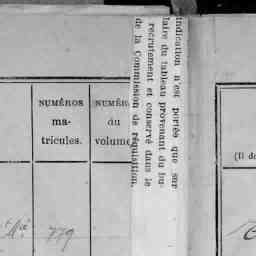 indication n'est portée que sur
laire du tableau provenant du bu-
recrutement et conservé dans le
de la Commission de réquisition.
NUMÉROS
ma-
tricules.
NUMÉR
du
volume
(Il d
779